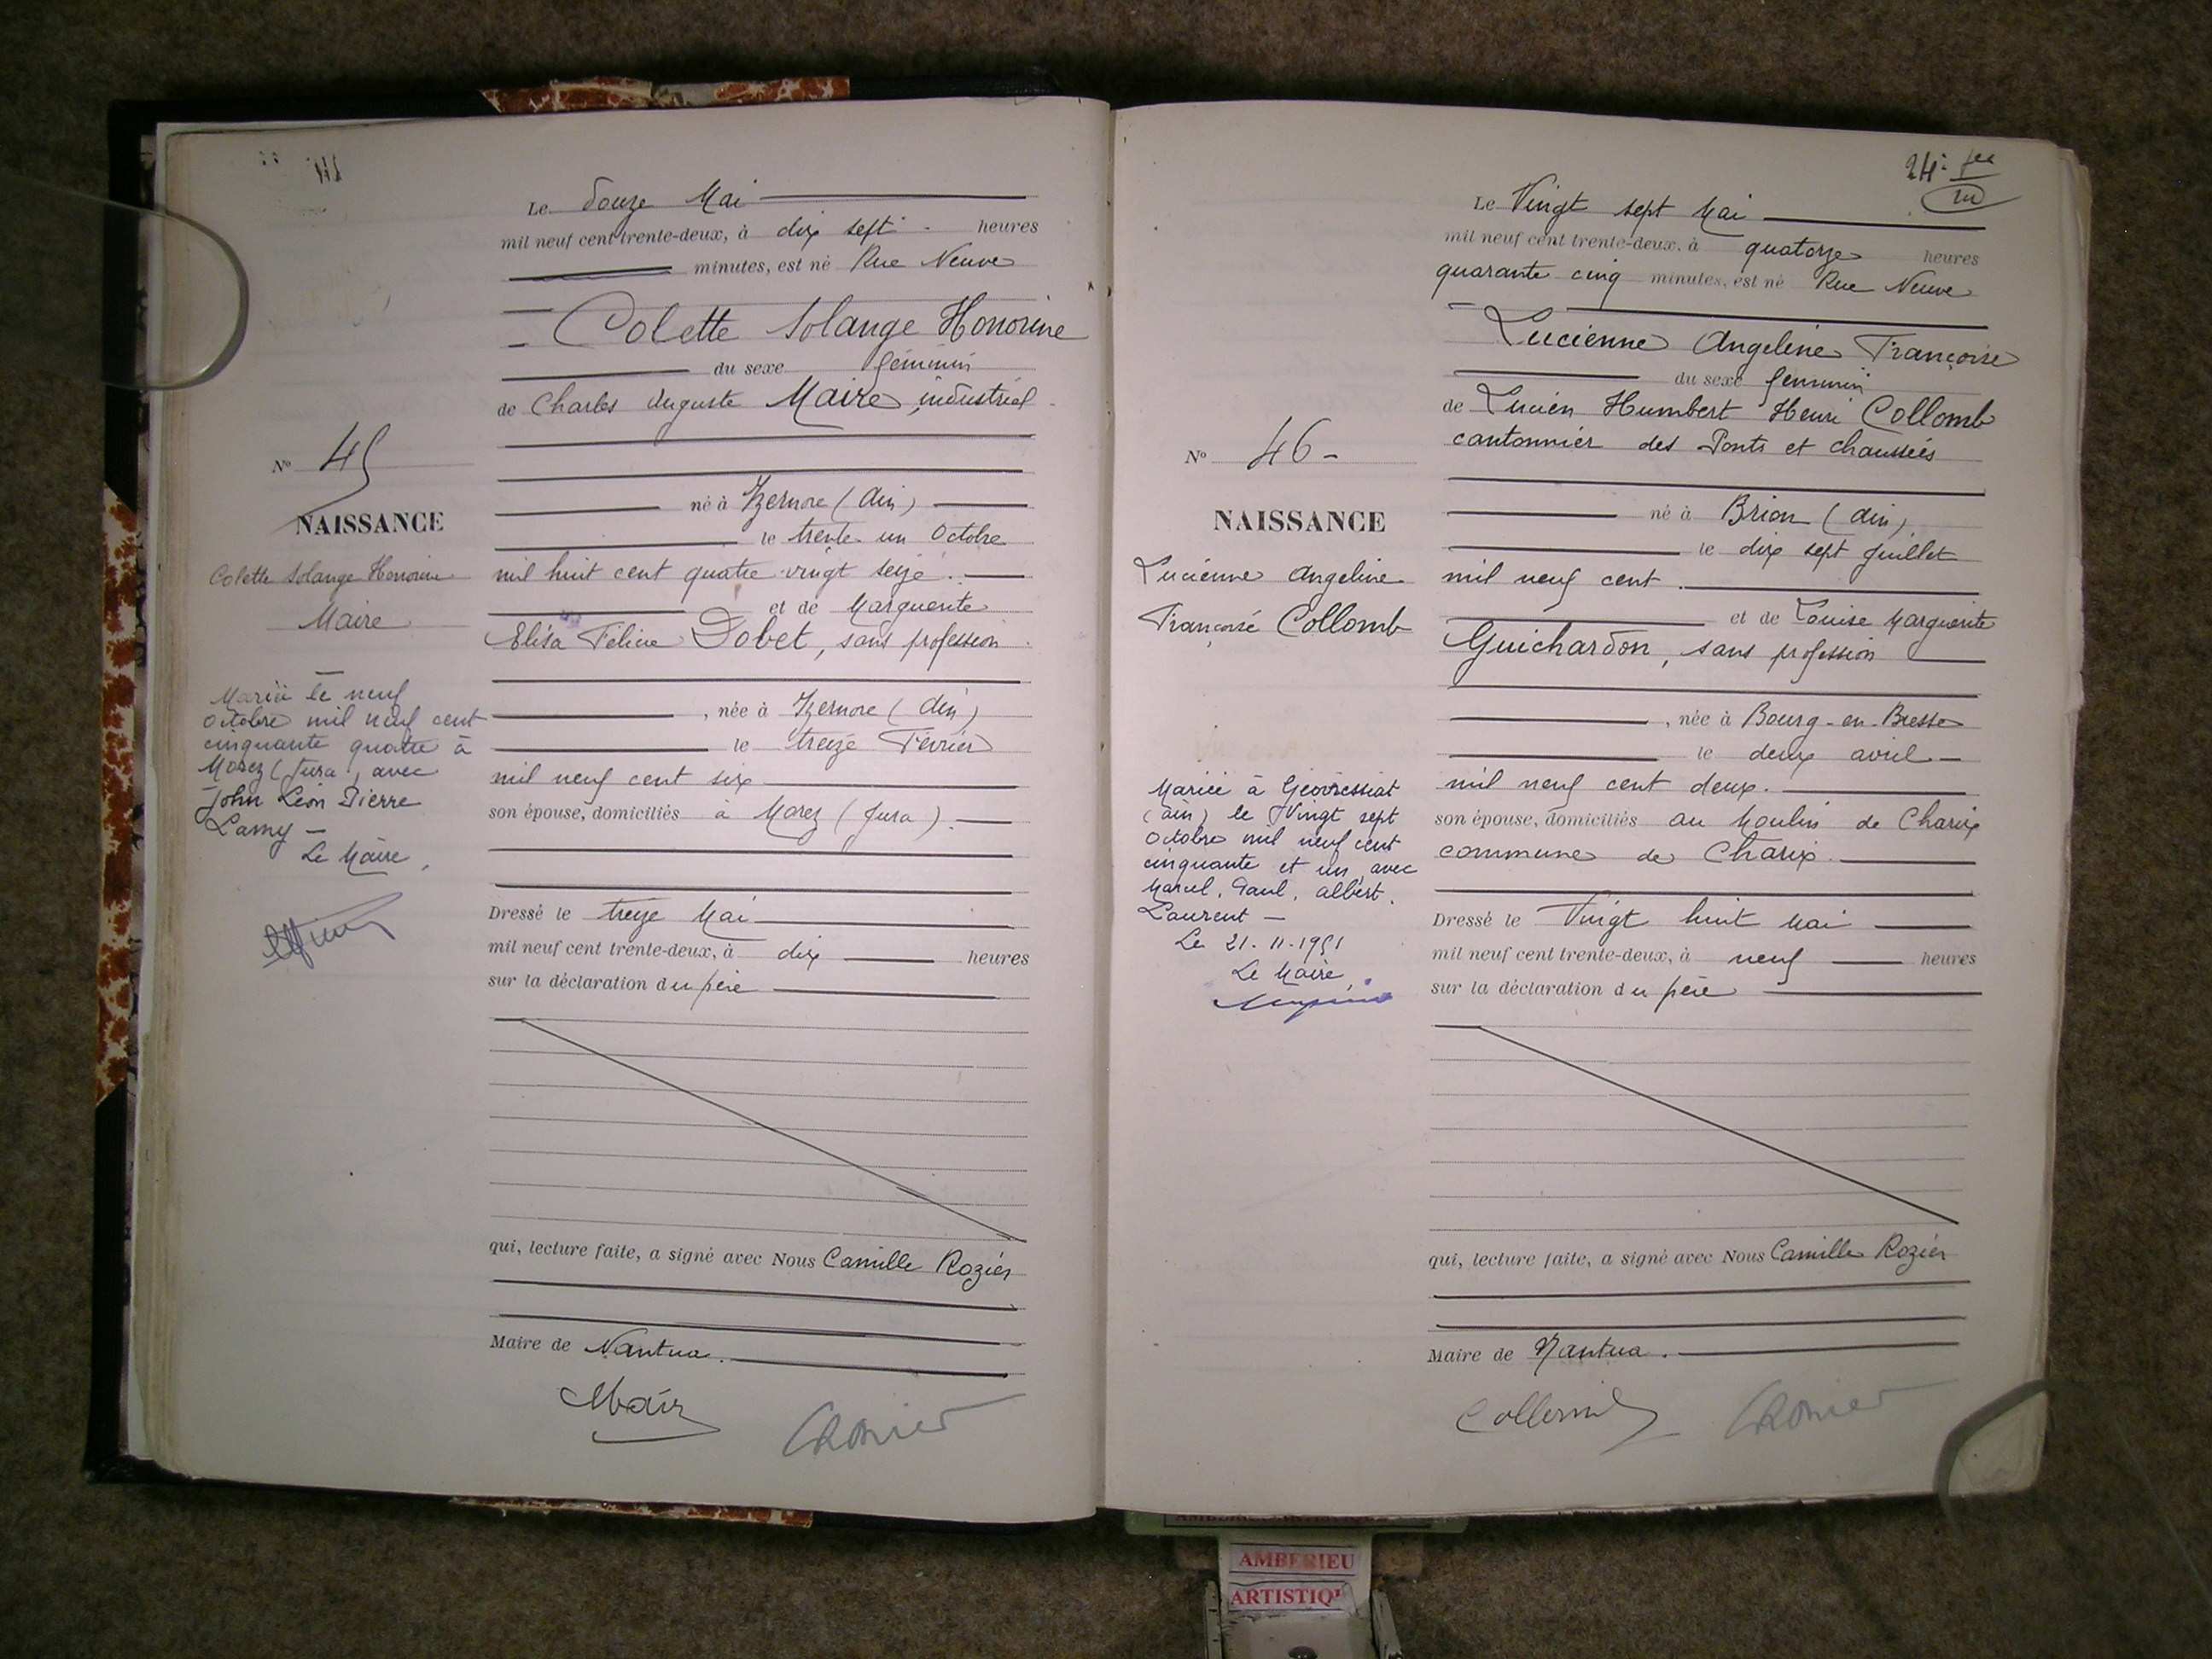 Le douze Mai
mil neuf cent trente-deux, à dix sept heures
minutes, est né Rue Neuve
Colette Solange Honorine
du sexe féminin
de Charles Auguste Maire, industriel
Nº 45
NAISSANCE
Colette Solange Honorine
Maire
né à Izernore (Ain)
le trente un Octobre
mil huit cent quatre vingt seize.
et de Marguerite
Elisa Féline Dobet, sans profession
, née à Izernore (Ain)
le treize Février
mil neuf cent six
son épouse, domiciliés à Morez (Jura).
Mariée le neuf
octobre mil neuf cent
cinquante quatre à
Morez (Jura), avec
John Léon Pierre
Lamy -
Le Maire,
Dressé le treize Mai
mil neuf cent trente-deux, à dix heures
sur la déclaration du père
qui, lecture faite, a signé avec Nous Camille Rozier
Maire de Nantua.
24e
Le Vingt sept Mai
mil neuf cent trente-deux, à quatorze heures
quarante cinq minutes, est né Rue Neuve
Lucienne Angeline Françoise
du sexe féminin
de Lucien Humbert Henri Collomb
cantonnier des Ponts et chaussées
Nº 46 -
NAISSANCE
Lucienne Angeline
Françoise Collomb
né à Brion (Ain)
le dix sept Juillet
mil neuf cent.
et de Louise Marguerite
Guichardon, sans profession
, née à Bourg-en-Bresse
le deux avril
mil neuf cent deux.
son épouse, domiciliés au Moulin de Charix
commune de Charix.
Mariée à Géovressiat
(Ain) le Vingt sept
octobre mil neuf cent
cinquante et un, avec
Marcel, Paul, Albert,
Laurent -
Le 21.11.1951
Le Maire,
Dressé le Vingt huit Mai
mil neuf cent trente-deux, à neuf heures
sur la déclaration du père
qui, lecture faite, a signé avec Nous Camille Rozier
Maire de Nantua.
AMBERIEU
ARTISTIQ